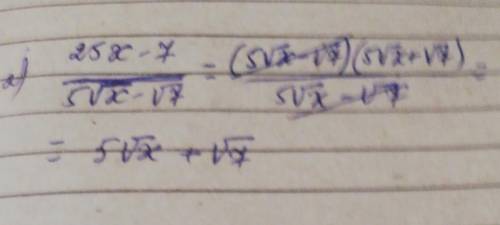 x) (25x - 7)/(5√x - √7) = (5√x - √7)(5√x + √7)/(5√x - √7) =
= 5√x + √7